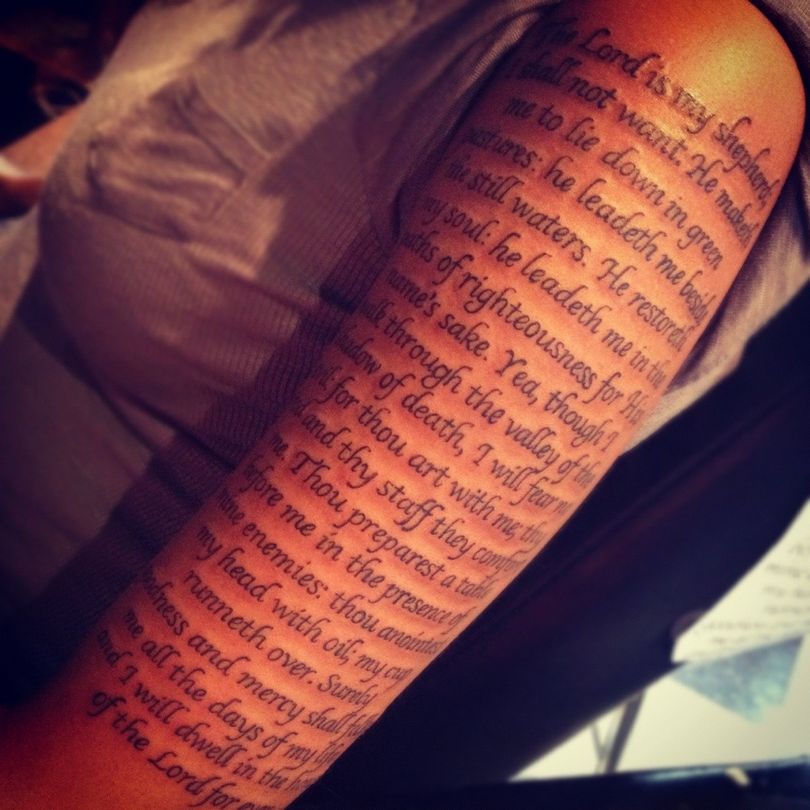 The Lord is my shepherd,
I shall not want. He maketh
me to lie down in green
pastures: he leadeth me beside
the still waters. He restoreth
my soul: he leadeth me in the
paths of righteousness for His
name's sake. Yea, though I
walk through the valley of the
shadow of death, I will fear no
for thou art with me, thy
and thy staff they comfort
me. Thou preparest a table
before me in the presence of
mine enemies: thou anointest
my head with oil; my cup
runneth over. Surely
goodness and mercy shall follow
me all the days of my life:
and I will dwell in the house
of the Lord for